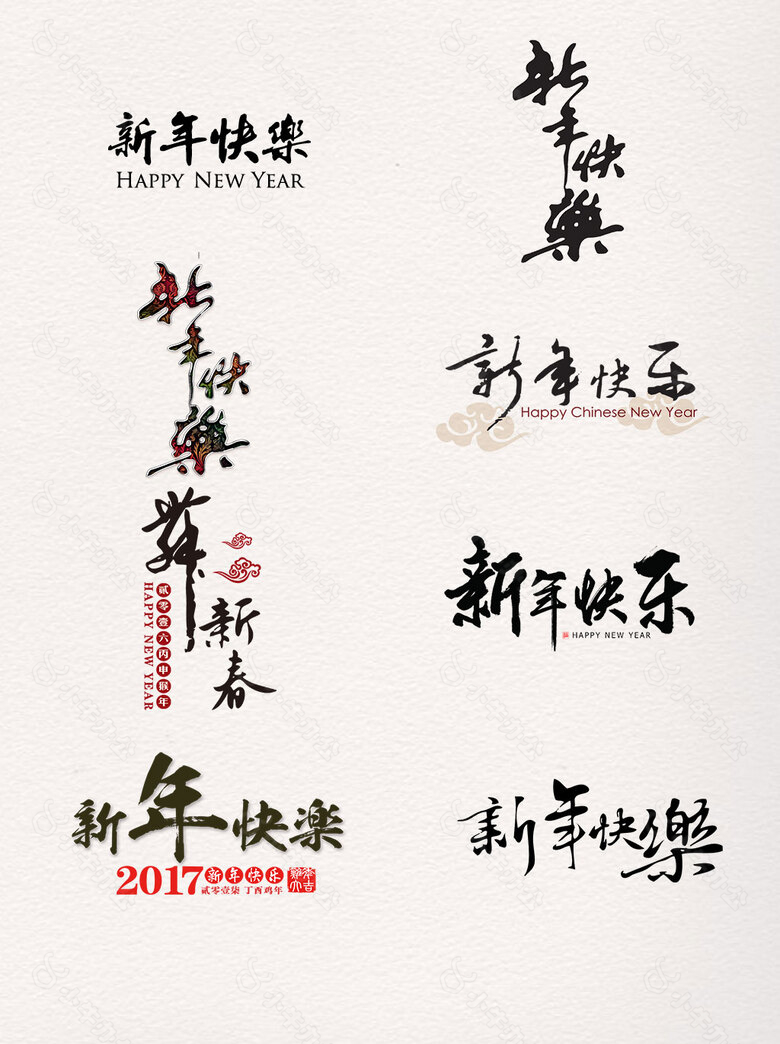 新年快樂
HAPPY NEW YEAR
新年快樂
新年快樂
新年快乐
Happy Chinese New Year
舞新春
贰零壹六丙申猴年
HAPPY NEW YEAR
新年快乐
HAPPY NEW YEAR
新年快楽
2017 新年快乐
贰零壹柒 丁酉鸡年
新年快樂